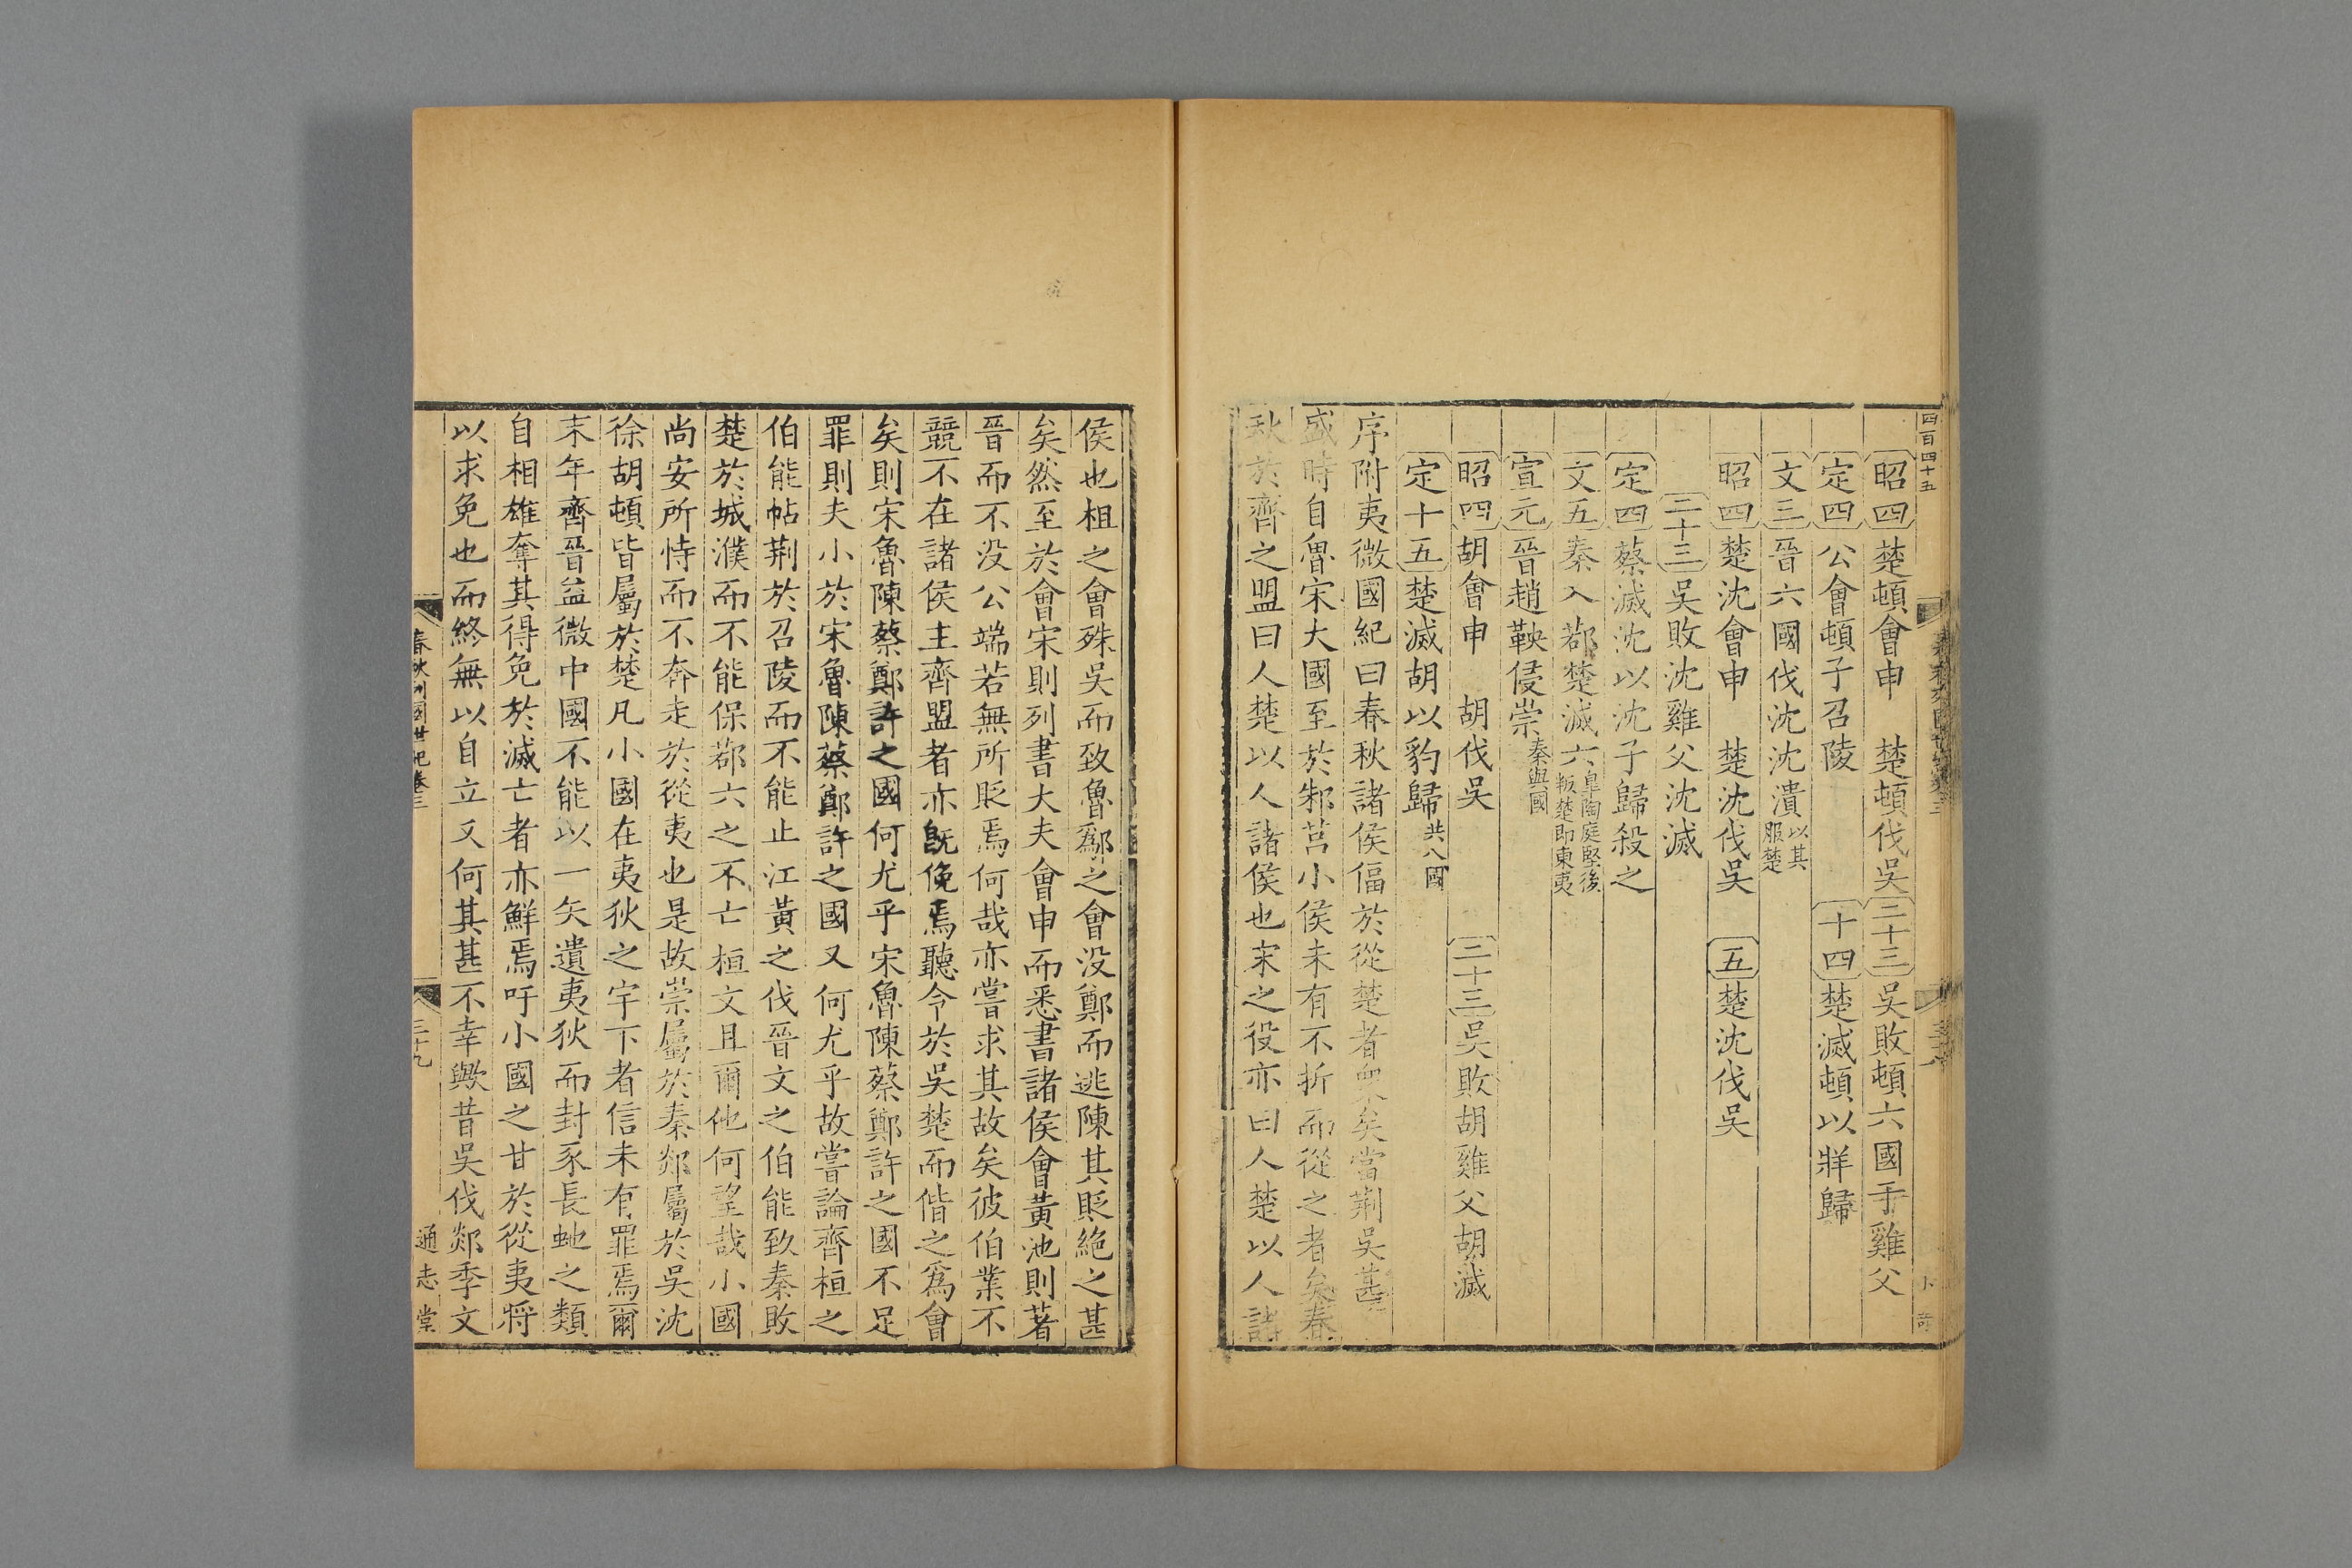 四百四十五
昭四楚頓會申　楚頓伐吳二十三吳敗頓六國于雞父
定四公會頓子召陵　十四楚滅頓以牂歸
文三晉六國伐沈沈潰以其服楚
昭四楚沈會申　楚沈伐吳　五楚沈伐吳
二十三吳敗沈雞父沈滅
定四蔡滅沈以沈子歸殺之
文五秦入鄀楚滅六皐陶庭堅後叛楚即東夷
宣元晉趙鞅侵崇秦與國
昭四胡會申　胡伐吳　二十三吳敗胡雞父胡滅
定十五楚滅胡以豹歸共八國
序附夷微國紀曰春秋諸侯偪於從楚者衆矣當荆吳甚
盛時自魯宋大國至於邾莒小侯未有不折而從之者矣春
秋於齊之盟曰人楚以人諸侯也宋之役亦曰人楚以人諸
侯也柤之會殊吳而致魯鄬之會没鄭而逃陳其貶絶之甚
矣然至於會宋則列書大夫會申而悉書諸侯會黃池則著
晉而不没公端若無所貶焉何哉亦嘗求其故矣彼伯業不
競不在諸侯主齊盟者亦旣俛焉聽令於吳楚而偕之爲會
矣則宋魯陳蔡鄭許之國何尤乎宋魯陳蔡鄭許之國不足
罪則夫小於宋魯陳蔡鄭許之國又何尤乎故嘗論齊桓之
伯能帖荆於召陵而不能止江黃之伐晉文之伯能致秦敗
楚於城濮而不能保鄀六之不亡桓文且爾他何望哉小國
尚安所恃而不奔走於從夷也是故崇屬於秦郯屬於吳沈
徐胡頓皆屬於楚凡小國在夷狄之宇下者信未有罪焉爾
末年齊晉益微中國不能以一矢遺夷狄而封豕長虵之類
自相雄奪其得免於滅亡者亦鮮焉吁小國之甘於從夷將
以求免也而終無以自立又何其甚不幸歟昔吳伐郯季文
春秋列國世紀卷三　三十九　通志堂